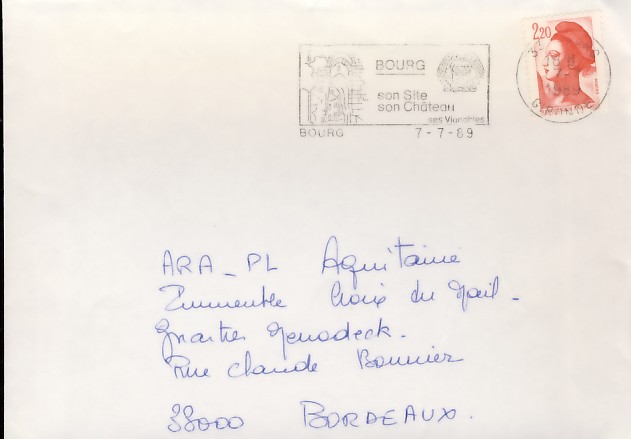 2,20
BOURG
son Site
son Château
ses Vignobles
BOURG 7-7-89
1989
GIRONDE
ARA_PL Aquitaine
Immeuble Croix du Mail -
Quartier Meriadeck.
Rue Claude Bonnier
33000 BORDEAUX.